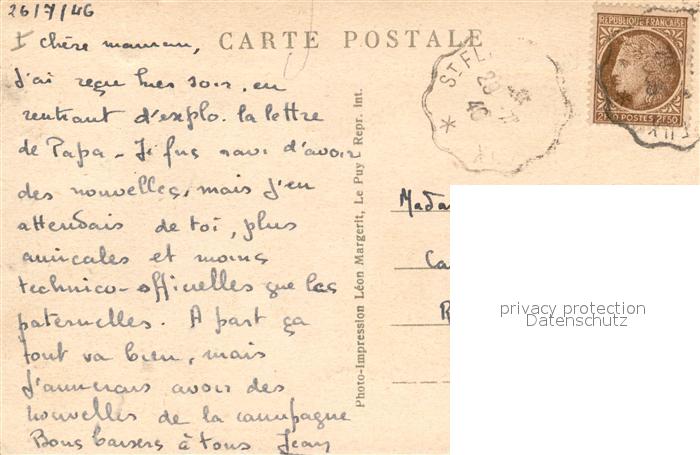 26/7/46
I chère maman,
CARTE POSTALE
J'ai reçu hier soir, en
rentrant d'explo. la lettre
de Papa - Je fus ravi d'avoir
des nouvelles, mais j'en
attendais de toi, plus
amicales et moins
technico-officielles que les
paternelles. A part ça
tout va bien, mais
j'aimerais avoir des
nouvelles de la campagne
Bons baisers à tous Jean
Photo-Impression Léon Margerit, Le Puy - Repr. int.
ST FL
46
RÉPUBLIQUE FRANÇAISE
2F50 POSTES 2F50
Mada
Ca
R
privacy protection
Datenschutz